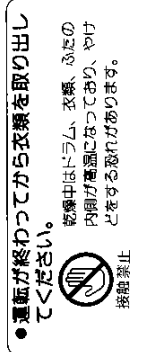 ●運転が終わってから衣類を取り出し
てください。
乾燥中はドラム、衣類、ふたの
内側が高温になっており、やけ
どをする恐れがあります。
接触禁止